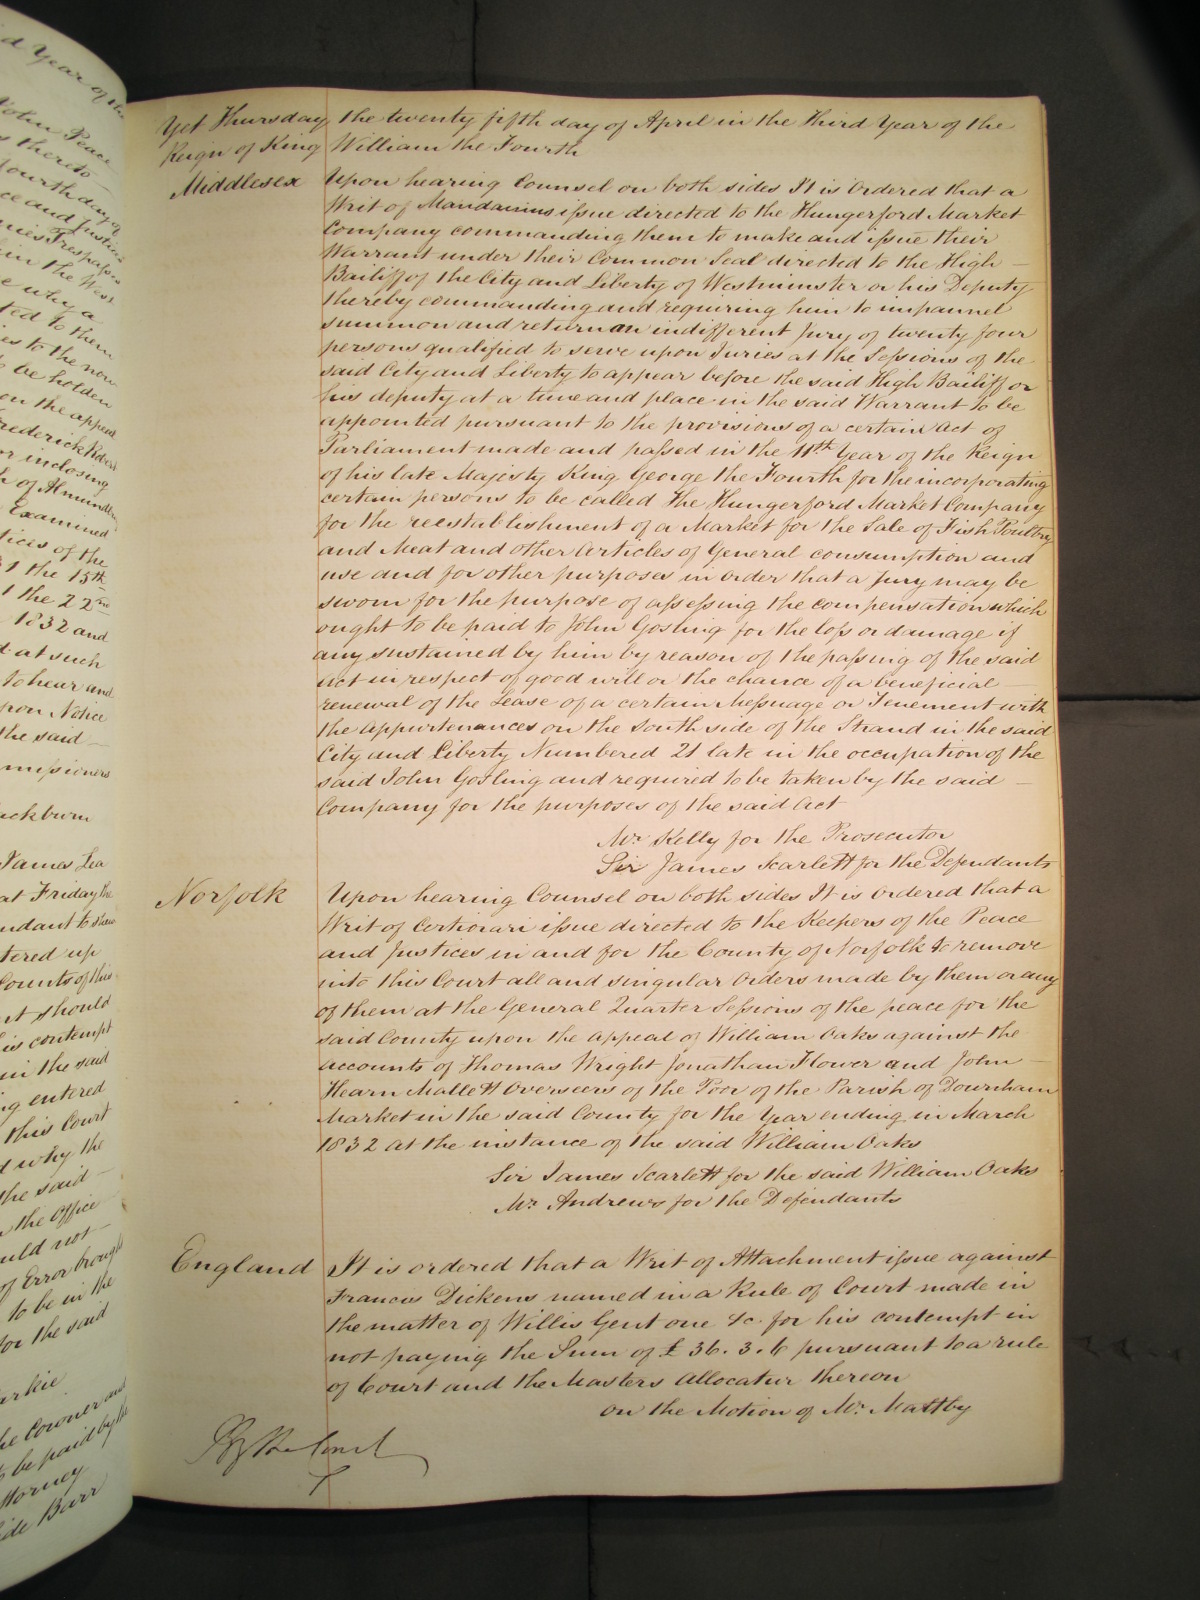 Yet Thursday the twenty fifth day of April in the Third Year of the
Reign of King William the Fourth
Middlesex Upon hearing Counsel on both sides It is Ordered that a
Writ of Mandamus issue directed to the Hungerford Market
Company commanding them to make and issue their
Warrant under their Common Seal directed to the High —
Bailiff of the City and Liberty of Westminster or his Deputy
thereby commanding and requiring him to impannel
summon and return an indifferent Jury of twenty four
persons qualified to serve upon Juries at the Sessions of the
said City and Liberty to appear before the said High Bailiff or
his deputy at a time and place in the said Warrant to be
appointed pursuant to the provisions of a certain Act of
Parliament made and passed in the 11th Year of the Reign
of his late Majesty King George the Fourth for the incorporating
certain persons to be called The Hungerford Market Company
for the reestablishment of a Market for the Sale of Fish Poultry
and Meat and other Articles of General consumption and
use and for other purposes in order that a Jury may be
sworn for the purpose of assessing the compensation which
ought to be paid to John Gosling for the loss or damage if
any sustained by him by reason of the passing of the said
Act in respect of good will or the chance of a beneficial —
renewal of the Lease of a certain Messuage or Tenement with
the appurtenances on the South side of the Strand in the said
City and Liberty Numbered 21 late in the occupation of the
said John Gosling and required to be taken by the said —
Company for the purposes of the said Act
Mr. Kelly for the Prosecutor
Sir James Scarlett for the Defendants
Norfolk Upon hearing Counsel on both sides It is Ordered that a
Writ of Certiorari issue directed to the Keepers of the Peace
and Justices in and for the County of Norfolk to remove
into this Court all and singular Orders made by them or any
of them at the General Quarter Sessions of the peace for the
said County upon the appeal of William Oaks against the
accounts of Thomas Wright Jonathan Flower and John —
Hearn Mallett Overseers of the Poor of the Parish of Downham
Market in the said County for the Year ending in March
1832 at the instance of the said William Oaks
Sir James Scarlett for the said William Oaks
Mr. Andrews for the Defendants
England It is ordered that a Writ of Attachment issue against
Francis Dickens named in a Rule of Court made in
the matter of Willis Gent one &c. for his contempt in
not paying the Sum of £36. 3. 6 pursuant to a rule
of Court and the Masters allocatur thereon
on the Motion of Mr. Maltby
By the Court